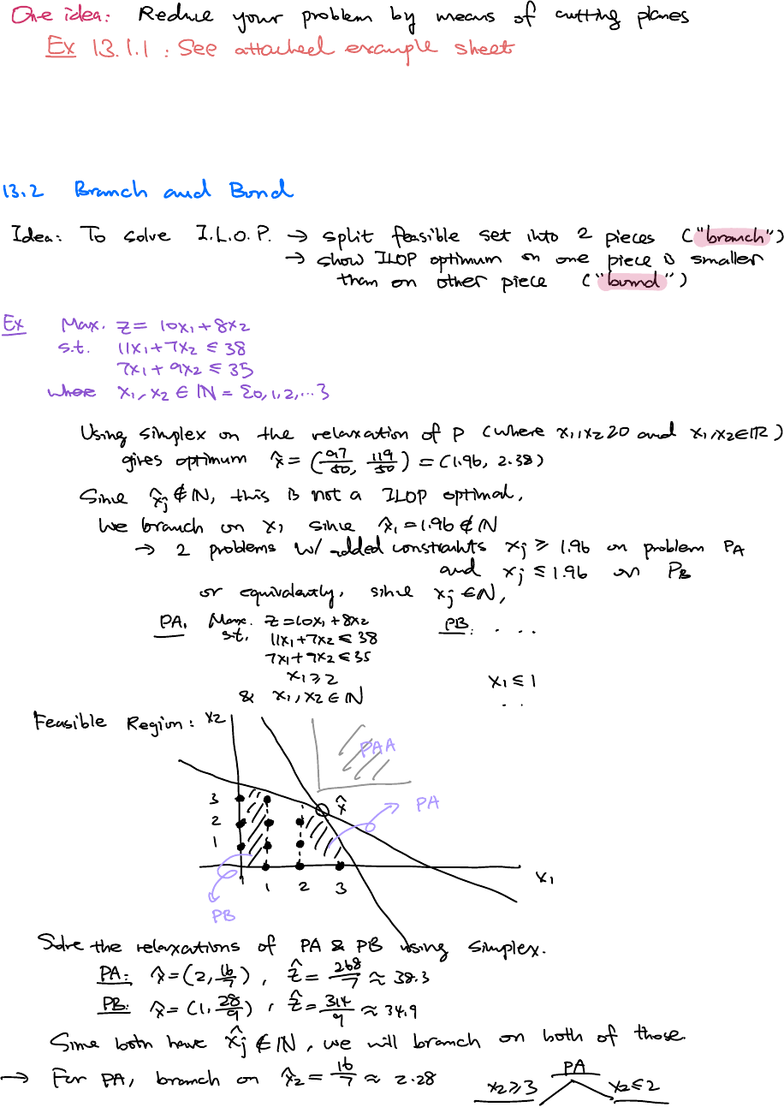 One idea: Reduce your problem by means of cutting planes
Ex 13.1.1 : See attached example sheet
13.2 Branch and Bond
Idea: To solve I.L.O.P. → split feasible set into 2 pieces ("branch")
→ show ILOP optimum on one piece is smaller
than on other piece ("bound")
Ex Max. z = 10x₁+8x₂
s.t. 11x₁+7x₂ ≤ 38
7x₁+9x₂ ≤ 35
where x₁, x₂ ∈ ℕ = {0,1,2,...}
Using simplex on the relaxation of P (where x₁,x₂≥0 and x₁,x₂∈ℝ)
gives optimum x̂ = (97/50, 119/50) = (1.96, 2.38)
Since x̂ⱼ ∉ ℕ, this is not a ILOP optimal.
We branch on x₁ since x̂₁ = 1.96 ∉ ℕ
→ 2 problems w/ added constraints xⱼ ≥ 1.96 on problem PA
and xⱼ ≤ 1.96 on PB
or equivalently, since xⱼ ∈ ℕ,
PA. Max. z = 10x₁+8x₂ PB: ...
s.t. 11x₁+7x₂ ≤ 38
7x₁+9x₂ ≤ 35
x₁ ≥ 2 x₁ ≤ 1
& x₁, x₂ ∈ ℕ ..
Feasible Region: x₂
PAA
3 x̂ PA
2
1
x₁
1 2 3
PB
Solve the relaxations of PA & PB using simplex.
PA: x̂ = (2, 16/7), ẑ = 268/7 ≈ 38.3
PB: x̂ = (1, 28/9), ẑ = 314/9 ≈ 34.9
Since both have x̂ⱼ ∉ ℕ, we will branch on both of those.
→ For PA, branch on x̂₂ = 16/7 ≈ 2.28 x₂≥3 PA x₂≤2